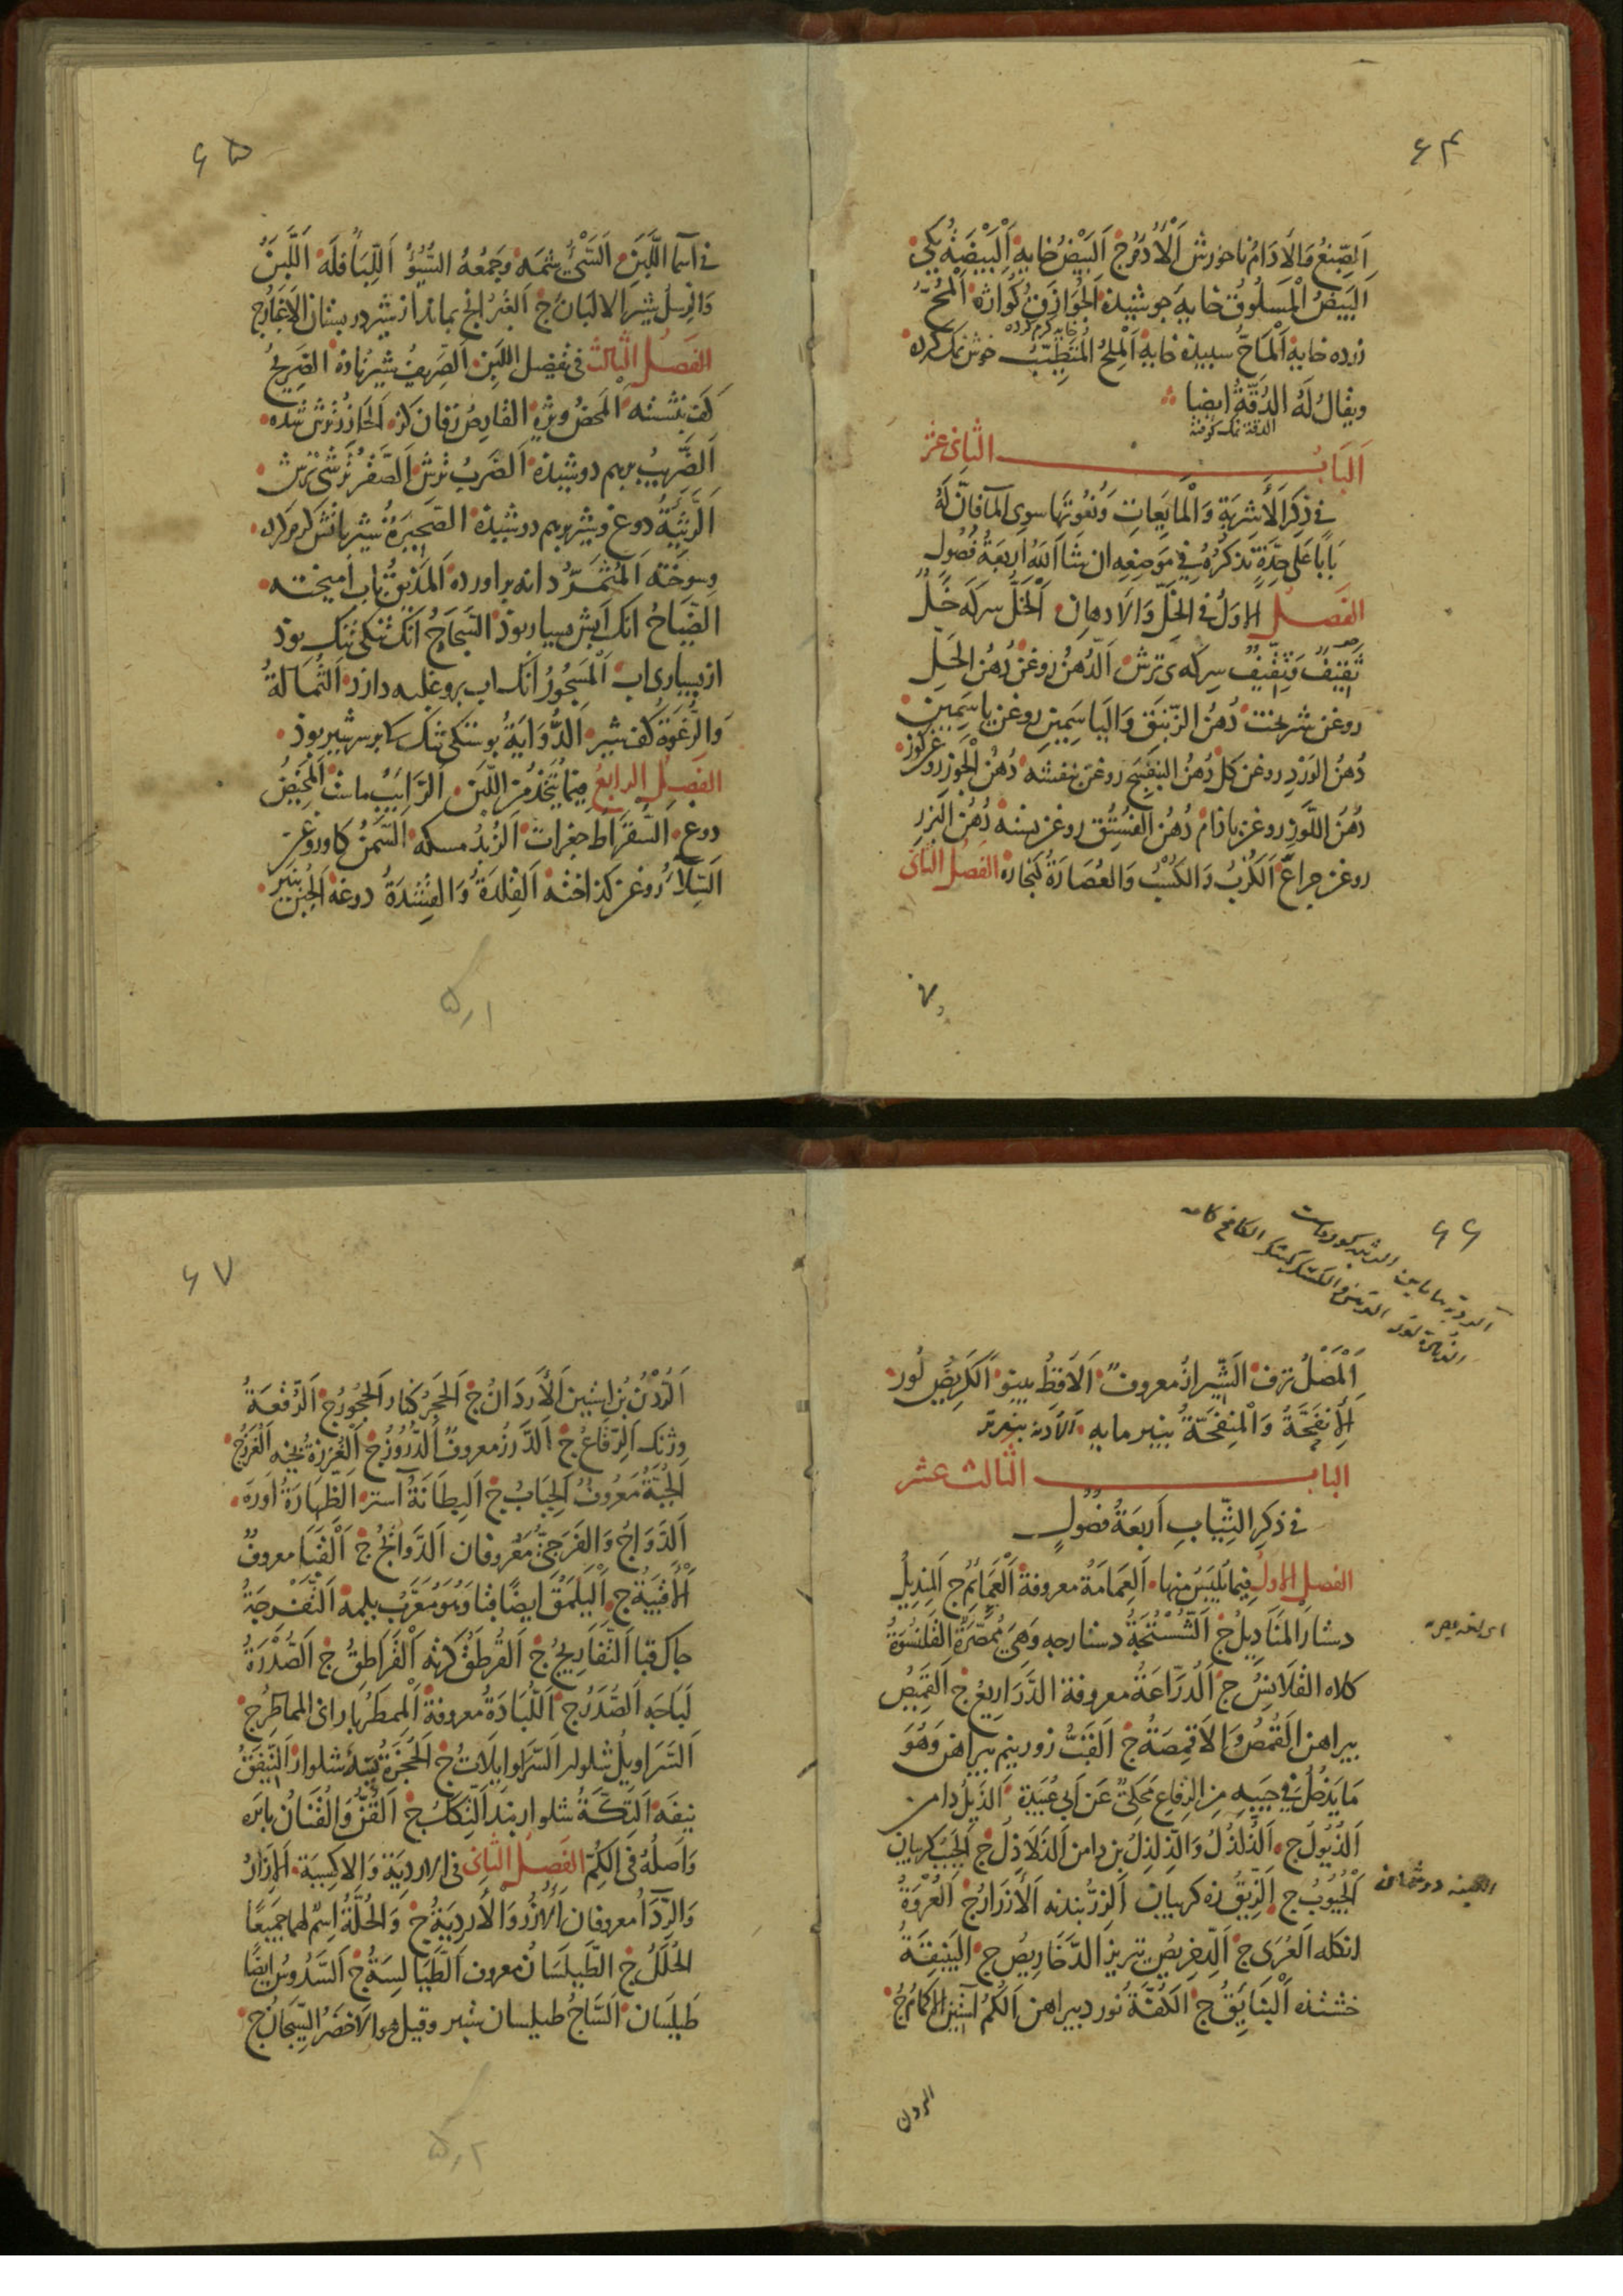 ۶۴
اَلصِّبْغُ وَالاَدَامُ نانخورش اَلْاُدُمُ ج اَلبَيْضُ خايه اَلْبَيْضَةُ يكى
اَلبَيْضُ الْمَسلُوقُ خايهٔ جوشيده الجُوَازَقُ كُوازه اَلْمُحُّ
زرده خايه اَلْمَاحُّ سبيده خايه اَلْمِلحُ المُتَطَيِّبُ خوش نمك كرده
ويقالُ لَهُ الدُقّةُ ايضا
الدقة نمك كوفته
اَلبَابُ الثانى عشر
فى ذِكرِ الاَشْرِبَةِ وَالْمَايِعَاتِ وَنُعُوتِهَا سوى المآ فاِنَّ لَهُ
بَابًا عَلى حِدَةٍ نذكرُهُ فِي مَوضِعِه ان شَاَ اَللهُ اربَعَةُ فُصُولٍ
الفَصلُ الاوَلُ فى الخَلِّ وَالاَدهانِ اَلْخَلُّ سركه خَلٌّ
ثَقِيفٌ وَثِقِّيفٌ سِركه‌ى ترش اَلدّهنُ روغن دُهنُ الحَلِ
روغن شيرپخت دُهنُ الزَّنبَقِ وَاليَاسَمِينِ روغن ياسَمِين
دُهنُ الوَرْدِ روغن كل دُهنُ البَنَفْسَجِ روغن بنفشه دُهنُ الْجَوزِ روغن كوز
دُهنُ اللَّوزِ روغن باذام دُهنُ الفُسْتُقِ روغن پسته دُهنُ البَزرِ
روغن چراغ اَلكُزْبُ وَالكُسْبُ وَالعُصَارَةُ كنجاره الفَصلُ الثانى
۶۵
فى اَسمآ اللَّبَنِ اَلسَّىْءُ شمَه وَجَمْعُهُ السُّيُوْءُ اَللِّبَأ فله اَللَّبَنُ
وَالرِّسلُ شير الالبَانُ ج اَلغُبْرُ انچ بماند از شير در پستان الاَغبَارُ ج
الفَصلُ الثالث فى تفضيل اللبَنِ اَلصَّرِيفُ شير تازه الصَّرِيحُ
كف نشسته اَلمَحضُ ويژه القَارِصُ زفان كز اَلحَازِرُ ترش شده
اَلضَّرِيبُ برهم دوشيده اَلضَرَبُ ترش اَلصَّقرُ تُرشى ترش
اَلرَّثِيَّةُ دوغ و شير برهم دوشيده الصَّحِيرَةُ شير باتش كرم كرده
وسوخته اَلمُثَمَّرُ دانه براورده اَلمَذِيقُ باب آميخته
الضَّيَاحُ انك آبش بسيار بوذ السَّجَاجُ انك تنكى تنك بوذ
از بسيارى اب اَلْمَسْجُورُ آنك اب برو غلبه دارد الثُّمَالَةُ
وَالرَّغوَةُ كف شير الدُّوَايَةُ پوستكى تنك كه بر سر شير بوذ
الفَصلُ الرابِعُ فِيمَا يُتَّخَذُ مِنَ اللَّبَنِ اَلرَّايِبُ ماست اَلمَخِيضُ
دوغ السُّقرَاطُ جغرات اَلزُّبدُ مسكه السَّمنُ كاو روغن
اَلسِّلآَءُ روغن كداخته اَلقِلدَةُ وَالقِشدَةُ دوغه الجُبنُ پنير
۵٫۱
۶۶
اَلْمَصْلُ ترف اَلشِّيرَازُ معروفٌ اَلاَقِطُ پينو اَلكَرِيصُ لور
اَلأِنفَحَةُ وَالْمِنفَحَةُ پنير مايه
الباب الثالث عشر
فى ذكرِ الثِّيَابِ اَربَعَةُ فصُولٍ
الفصل الاولُ فِيمَا يُلبَسُ مِنهَا اَلعِمَامَةُ معروفة اَلْعَمَايمُ ج اَلمِنديلُ
دستار المَنَادِيلُ ج اَلشَّسْتُجَةُ دستارچه وَهِيَ مُمَصَّرَةٌ القَلَنسُوَةُ
كلاه القَلَانِسُ ج اَلدُرّاعَةُ معروفة الدَّرَارِيعُ ج اَلقَمِيصُ
پيراهن القُمُصُ وَالاَقمِصَةُ ج اَلقَبُّ زور نيم پيراهن وَهُوَ
مَا يَدخُلُ فِي جَيبِهِ مِنَ الرِقَاعِ مَحكِىٌّ عَن اَبى عُبَيدَة اَلذَيلُ دامن
اَلذُيُولُ ج اَلذُّلذُلُ وَالذِلذِلُ بن دامن اَلذَلَاذِلُ ج اَلجَيبُ كريبان
اَلْجُيُوبُ ج اَلزِيقُ زه كريبان اَلزِرُّ بندنه اَلْاَزْرَارُ ج اَلعُروَةُ
انكله اَلعُرَى ج اَلدِخرِيصُ تيريز اَلدَّخَارِيصُ ج اَلبَنِيقَةُ
خشتذه اَلْبَنَايِقُ ج اَلكُفَّةُ نورد پيراهن اَلكُمُّ آستين الاَكمَامُ ج
الردن
۶۷
اَلرُدْنُ بُن آستين اَلأَردَانُ ج اَلحَجرُ كنار اَلحُجُورُ ج اَلرُّقْعَةُ
وژنك اَلرِّقَاعُ ج اَلدَّرزُ معروفٌ اَلدُّرُوزُ ج اَلْغُرْزَةُ بخيه اَلْغُرَزُ ج
اَلجُبَّةُ مَعرُوفٌ اَلجِبَابُ ج اَلبِطَانَةُ آستر الظِّهَارَةُ اوره
اَلدَّوَاجُ وَالفَرَجِىُّ مَعرُوفان اَلدَّوَايجُ ج اَلْقَبَا معروفٌ
اَلْأَقبِيَةُ ج اَليَلمَقُ ايضًا قبا وَهُوَ مُعَرَّبُ يلمه اَلتَّفرِجَةُ
چاك قبا اَلتَّفَارِيجُ ج اَلقُرطَقُ كرته اَلْقَرَاطِقُ ج اَلصُّدْرَةُ
لَباچَه اَلصُّدَرُ ج اَللُّبَّادَةُ معروفة اَلْمِمطَرُ بارانى المماطِرُ ج
اَلسَّرَاوِيلُ شلوار السَّرَاوِيلَاتُ ج اَلحُجْزَةُ نيفهٔ شلوار اَلنَّيفَقُ
نيفه اَلتِكَّةُ شلوار بند اَلتِّكَكُ ج اَلقُنُّ وَالقُنَانُ بابزه
وَاَصلُهُ فى الكُمِّ الفَصلُ الثانى فى الارديَةِ وَالاكسِيَةِ اَلاِزَارُ
وَالرِّدَآُ معروفان اَلاُزُرُ وَالأَردِيَةُ ج وَالحُلَّةُ اِسمٌ لهما جميعًا
الحُلَلُ ج الطَّيلَسَانُ معروف اَلطَّيَالِسَةُ ج اَلسَّدُوسُ ايضًا
طَيلَسَان اَلسَّاجُ طيلسان ستبر وقيل هو الاَخضَرُ السِّيجَانُ ج
۵٫۲